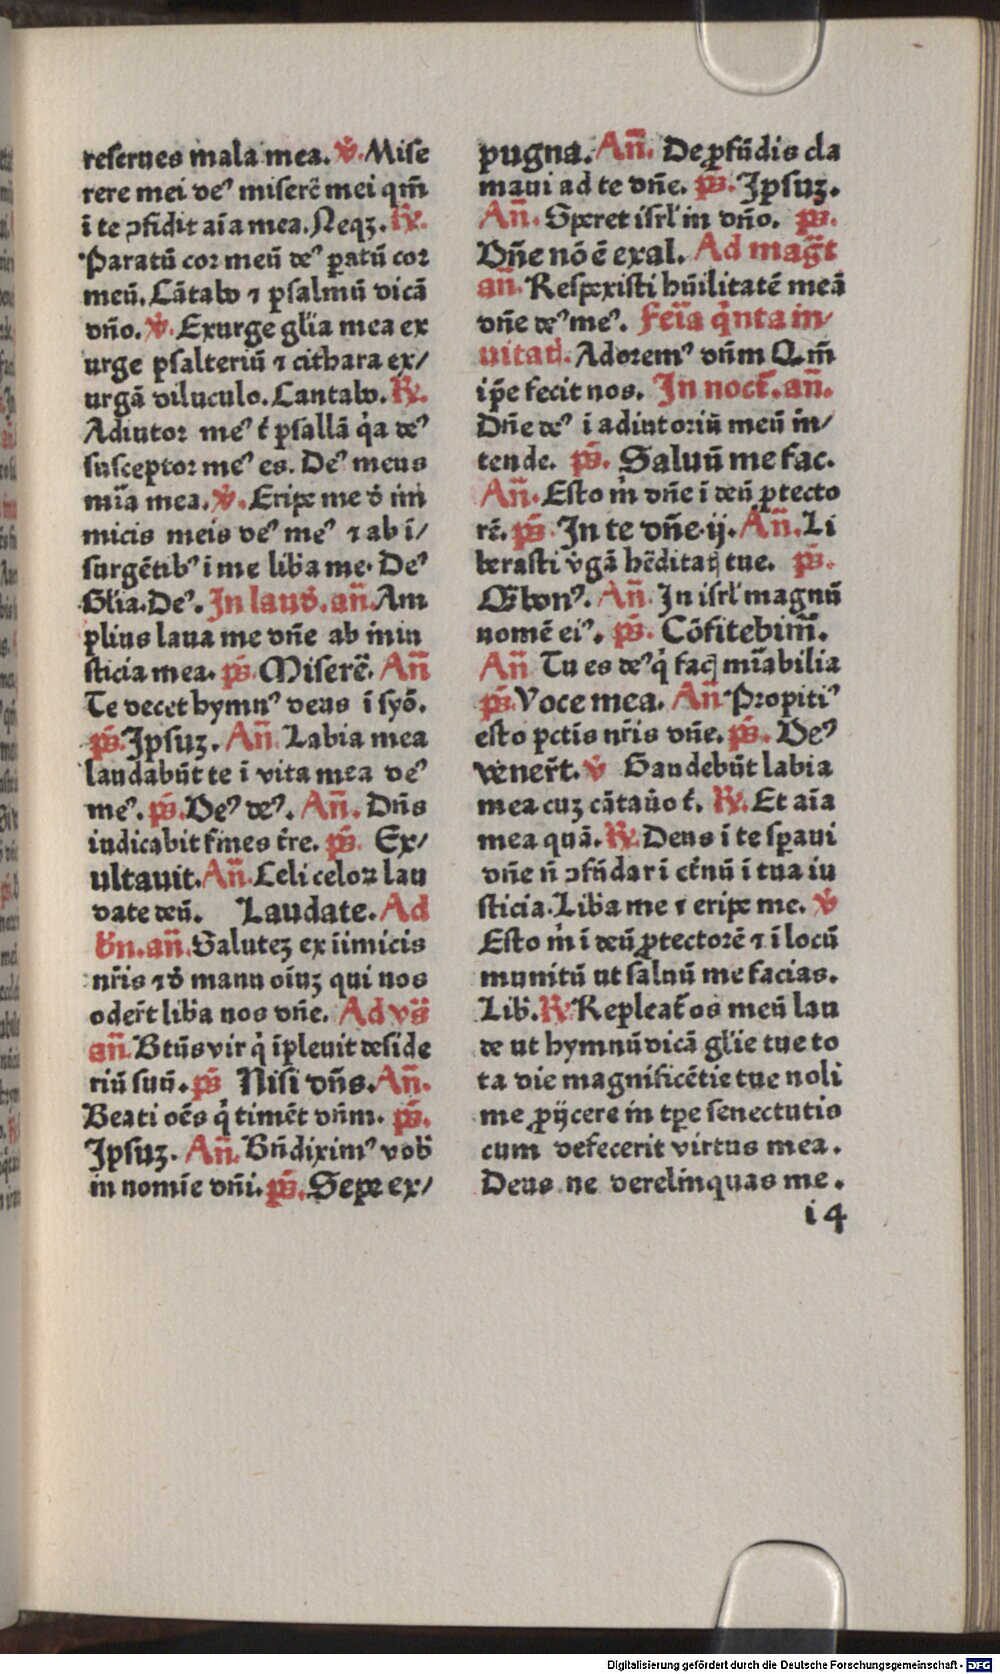 reserues mala mea. v̾. Mise
rere mei deꝰ miserē mei qm̄
ī te ꝯfidit aīa mea. Neqꝫ. ℟.
Paratū cor meū deꝰ ꝑatū cor
meū. Cātabo ⁊ psalmū dicā
dn̄o. v̾. Exurge gl̄ia mea ex
urge psalteriū ⁊ cithara ex/
urgā diluculo. Cantabo. ℟.
Adiutor meꝰ t̄ psallā q̇a deꝰ
susceptor meꝰ es. Deꝰ meus
mīa mea. v̾. Eripe me d̄ ini
micis meis deꝰ meꝰ ⁊ ab ī/
surgētibꝰ ī me lib̄a me. Deꝰ
Gl̄ia. Deꝰ. In laud̄. an̄. Am
plius laua me dn̄e ab iniu
sticia mea. ps̄. Miserē. An̄
Te decet hymnꝰ deus ī syō.
ps̄. Ipsuꝫ. An̄. Labia mea
laudabūt te ī vita mea deꝰ
meꝰ. ps̄. Deꝰ deꝰ. An̄. Dn̄s
iudicabit fines t̄re. ps̄. Ex/
ultauit. An̄. Celi celoꝝ lau
date deū. Laudate. Ad
bn̄. an̄. Saluteꝫ ex iimicis
nr̄is ⁊ d̄ manu oīuꝫ qui nos
oder̄t lib̄a nos dn̄e. Ad vs̄
an̄. Bt̄us vir q̇ īpleuit deside
riū suū. ps̄ Nisi dn̄s. An̄.
Beati oēs q̇ timēt dn̄m. ps̄.
Ipsuꝫ. An̄. Bn̄diximꝰ vob̄
in nomīe dn̄i. ps̄. Sepe ex/
pugna. An̄. De ꝓfūdis cla
maui ad te dn̄e. ps̄. Ipsuꝫ.
An̄. Speret isrl̄ in dn̄o. ps̄.
Dn̄e nō ē exal. Ad maḡt
an̄. Respexisti hūilitatē meā
dn̄e deꝰ meꝰ. Feīa q̇nta in/
uitad. Adoremꝰ dn̄m Qm̄
ip̄e fecit nos. In noct̄. an̄.
Dn̄e deꝰ ī adiutoriū meū in/
tende. ps̄. Saluū me fac.
An̄. Esto m̄ dn̄e ī deū ꝓtecto
rē. ps̄ In te dn̄e.ij. An̄. Li
berasti v̄gā hēditatꝭ tue. ps̄.
Qͦ bonꝰ. An̄. In isrl̄ magnū
nomē eiꝰ. ps̄. Cōfitebim̄.
An̄ Tu es deꝰ q̇ facꝭ mīabilia
ps̄. Voce mea. An̄ Propitiꝰ
esto pctīs nr̄is dn̄e. ps̄. Deꝰ
vener̄t. v̾ Gaudebūt labia
mea cuꝫ cātau̇o t̄. ℟. Et aīa
mea quā. ℟. Deus ī te sꝑaui
dn̄e n̄ ꝯfūdar ī et̄nū ī tua iu
sticia. Lib̄a me ⁊ eripe me. v̾
Esto m̄ ī deū ꝓtectorē ⁊ ī locū
munitū ut saluū me facias.
Lib̄. ℟. Repleat̄ os meū lau
de ut hymnū dicā gl̄ie tue to
ta die magnificētie tue noli
me ꝓijcere in tp̄e senectutis
cum defecerit virtus mea.
Deus ne derelinquas me.
i4
Digitalisierung gefördert durch die Deutsche Forschungsgemeinschaft - DFG